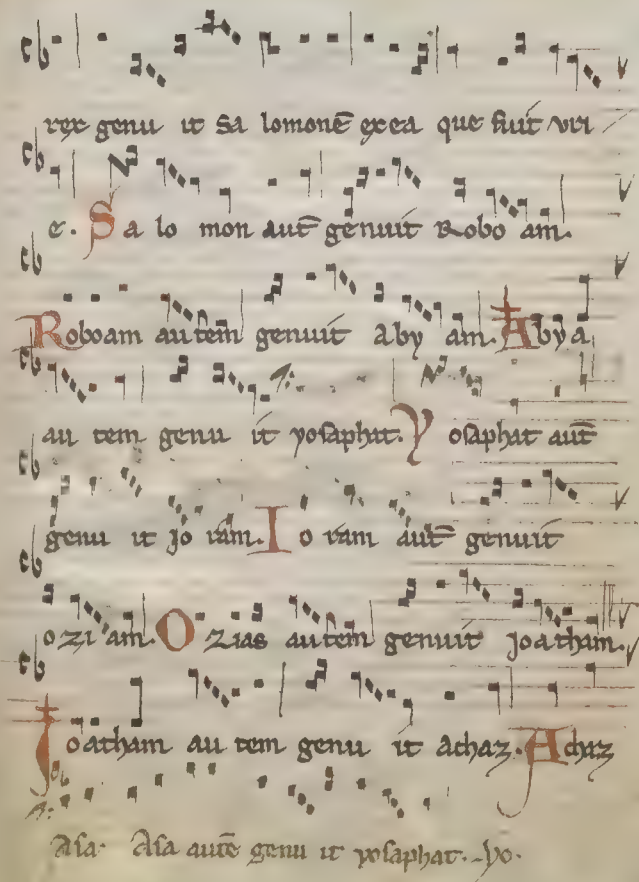 rex genu it Sa lomonē ex ea que fuit vri
e. Sa lo mon aut̄ genuit Robo am.
Roboam au tem genuit Aby am. Abya
au tem genu it yosaphat. Yosaphat aut̄
genu it Jo ram. Io ram aut̄ genuit
ozi am. Ozias autem genuit Joatham.
Joatham au tem genu it achaz. Achaz
Asa. Asa autē genu it yosaphat. Yo.